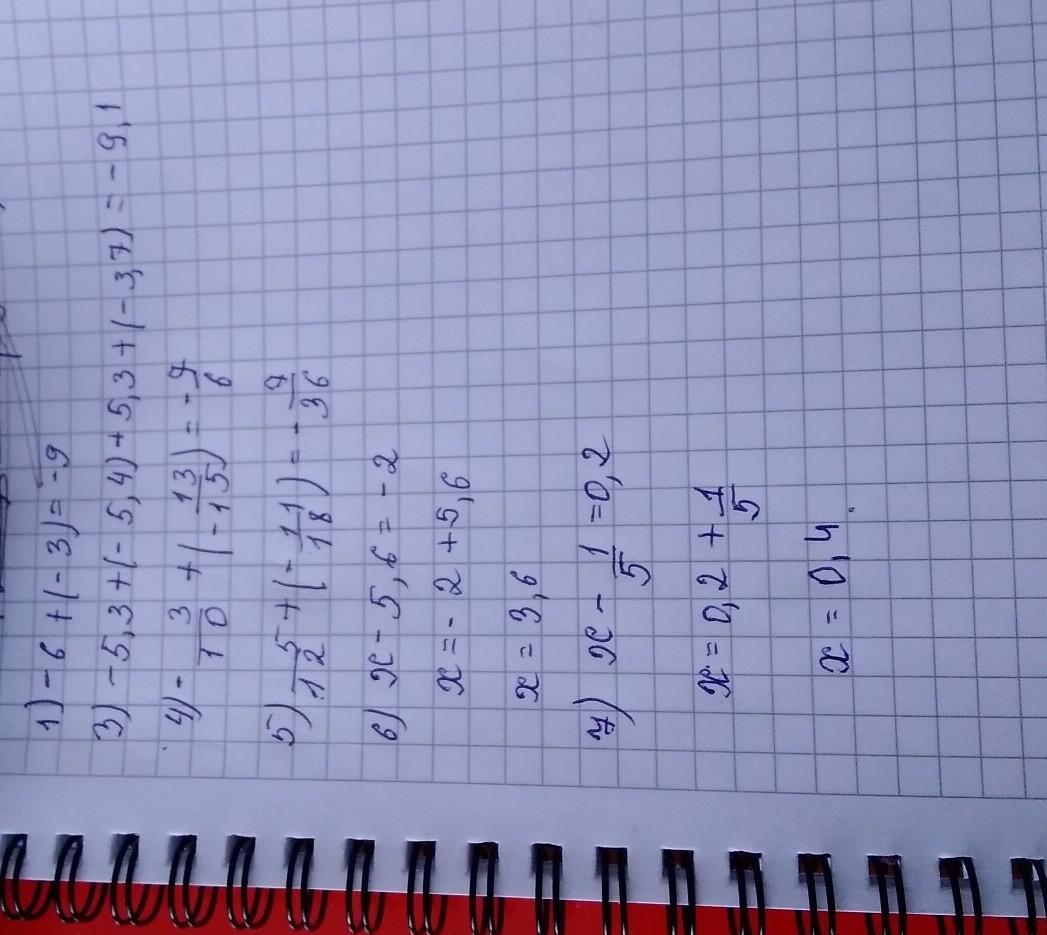 1) -6 + (-3) = -9
3) -5,3 + (-5,4) + 5,3 + (-3,7) = -9,1
4) - 3/10 + (- 13/15) = - 7/6
5) 5/12 + (- 11/18) = - 7/36
6) x - 5,6 = -2
x = -2 + 5,6
x = 3,6
7) x - 1/5 = 0,2
x = 0,2 + 1/5
x = 0,4.